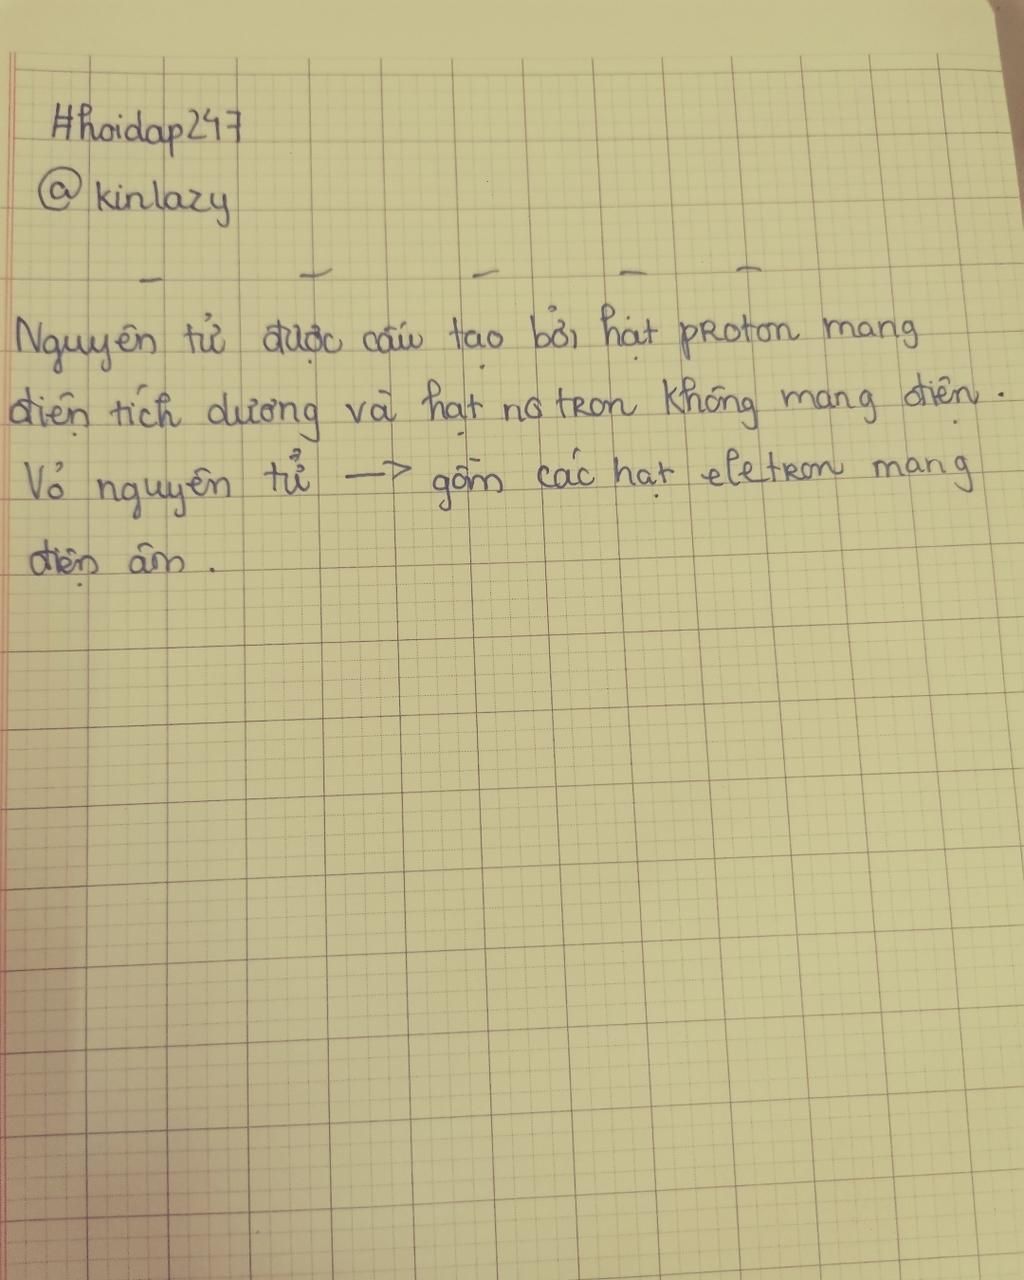 #hoidap247
@kinlazy
Nguyên tử được cấu tạo bởi hạt proton mang
điện tích dương và hạt nơ tron không mang điện.
Vỏ nguyên tử → gồm các hạt eletron mang
điện âm.